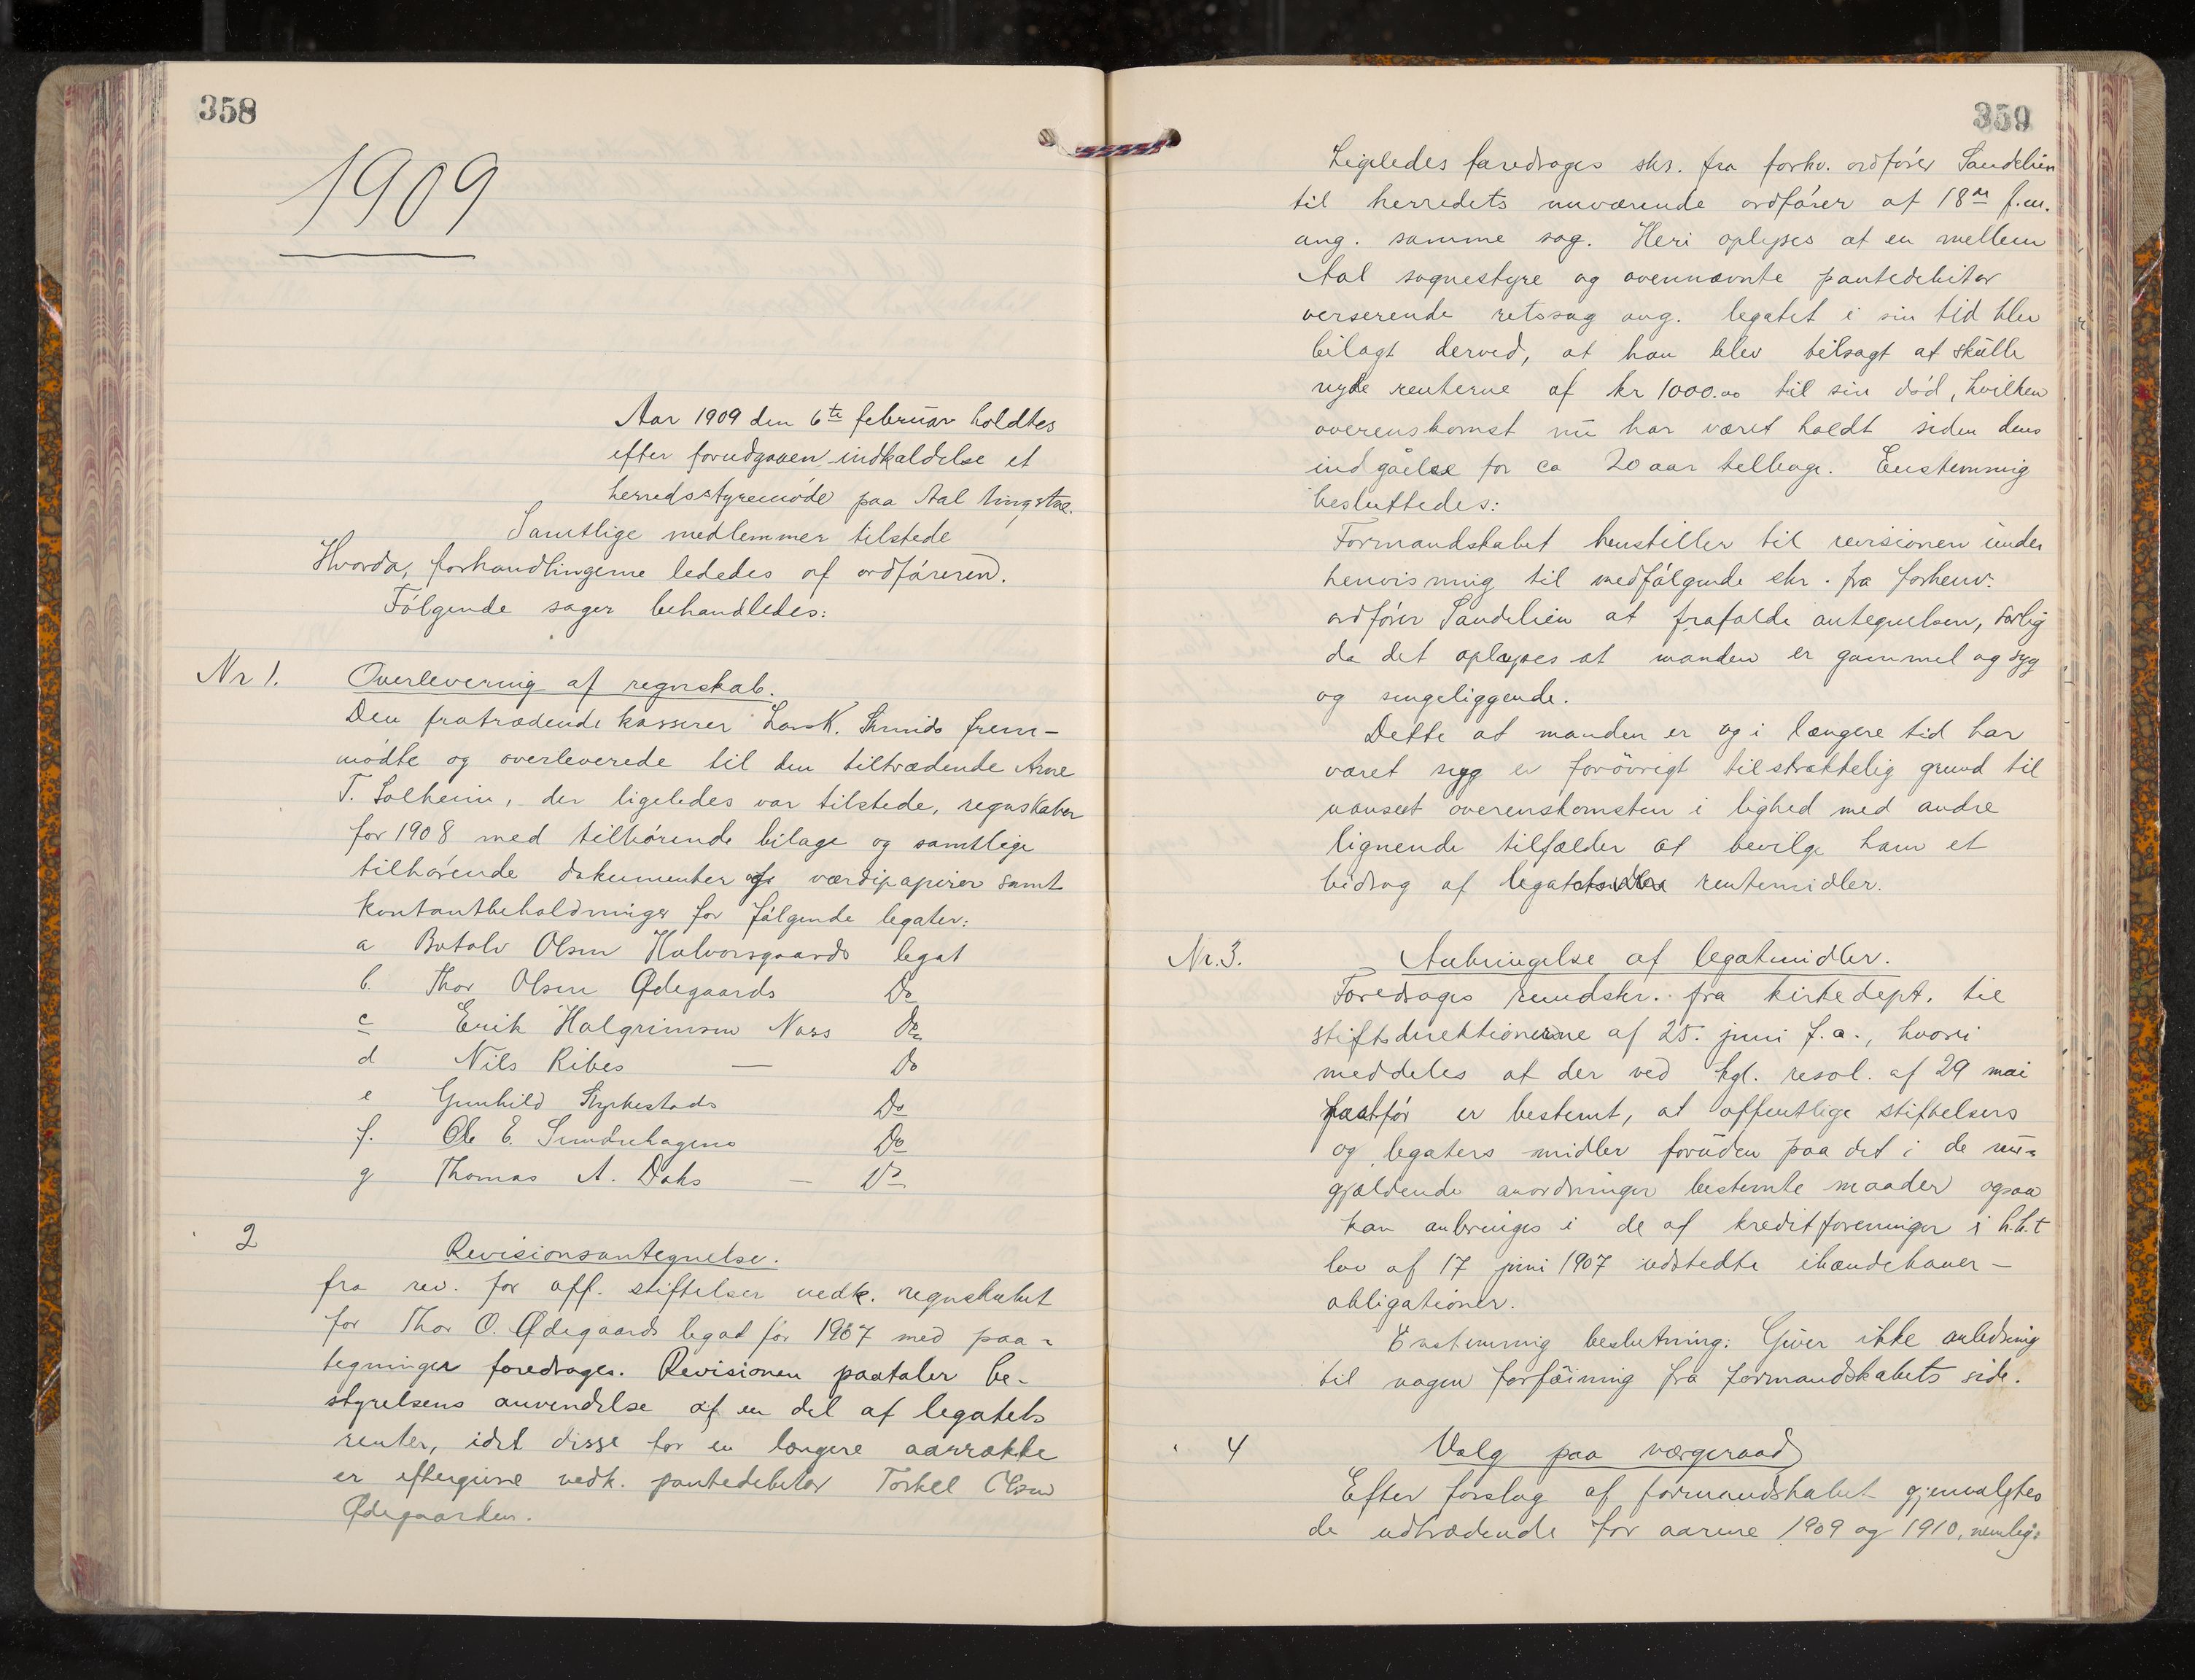 358
1909
Aar 1909 den 6te februar holdtes
efter forudgaaen indkaldelse et
herredsstyremøde paa Aal tingstue.
Samtlige medlemmer tilstede
Hvorda, forhandlingerne lededes af ordføreren.
Følgende sager behandledes:
Nr 1. Overlevering af regnskab.
Den fratrædende kasserer Lars K. frem-
mødte og overleverede til den tiltrædende Arne
T. Solheim, der ligeledes var tilstede, regnskaber
for 1908 med tilhørende bilage og samtlige
tilhørende dokumenter og værdipapirer samt
kontantbeholdninger for følgende legater:
a Botolv Olsen Halvorsgaards legat
b. Thor Olsen Ødegaards Do
c Erik Halgrimsen Næss Do
d Nils Ribes — Do
e Gunhild Do
f. Ole E. Sundrehagens Do
g Thomas A. Dahs — Do
2 Revisionsantegnelse.
fra rev. for off. stiftelser vedk. regnskabet
for Thor O. Ødegaards legat for 1907 med paa-
tegninger foredrages. Revisionen paataler be-
styrelsens anvendelse af en del af legatets
renter, idet disse for en længere aarrække
er eftergivne vedk. pantedebitor Torkel Olsen
Ødegaarden.
359
Ligeledes foredrages skr. fra forhv. ordfører Sandelien
til herredets nuværende ordfører af 18de f.m.
ang. samme sag. Heri oplyses at en mellem
Aal sognestyre og ovennævnte pantedebitor
verserende retssag ang. legatet i sin tid blev
bilagt derved, at han blev tilsagt at skulle
nyde renterne af kr 1000.00 til sin død, hvilken
overenskomst nu har været holdt siden dens
indgåelse for ca 20 aar tilbage. Enstemmig
besluttedes:
Formandskabet henstiller til revisionen under
henvisning til medfølgende skr. fra forhenv.
ordfører Sandelien at frafalde antegnelsen, særlig
da det oplyses at manden er gammel og syg
og sengeliggende.
Dette at manden er og i længere tid har
været syg er forøvrigt tilstrækkelig grund til
uanseet overenskomsten i lighed med andre
lignende tilfælder at bevilge ham et
bidrag af legatets rentemidler.
Nr. 3. Anbringelse af legatmidler.
Foredrages rundskr. fra kirkedept. til
stiftsdirektionerne af 25. juni f.a., hvori
meddeles at der ved kgl. resol. af 29 mai
næstfør er bestemt, at offentlige stiftelsers
og legaters midler foruden paa det i de nu-
gjældende anordninger bestemte maader ogsaa
kan anbringes i de af kreditforeninger i h.h.t
lov af 17 juni 1907 udstedte ihændehaver-
obligationer.
Enstemmig beslutning: Giver ikke anledning
til nogen forføining fra formandskabets side.
4 Valg paa værgeraad
Efter forslag af formandskabet gjenvalgtes
de udtrædende for aarene 1909 og 1910, nemlig: